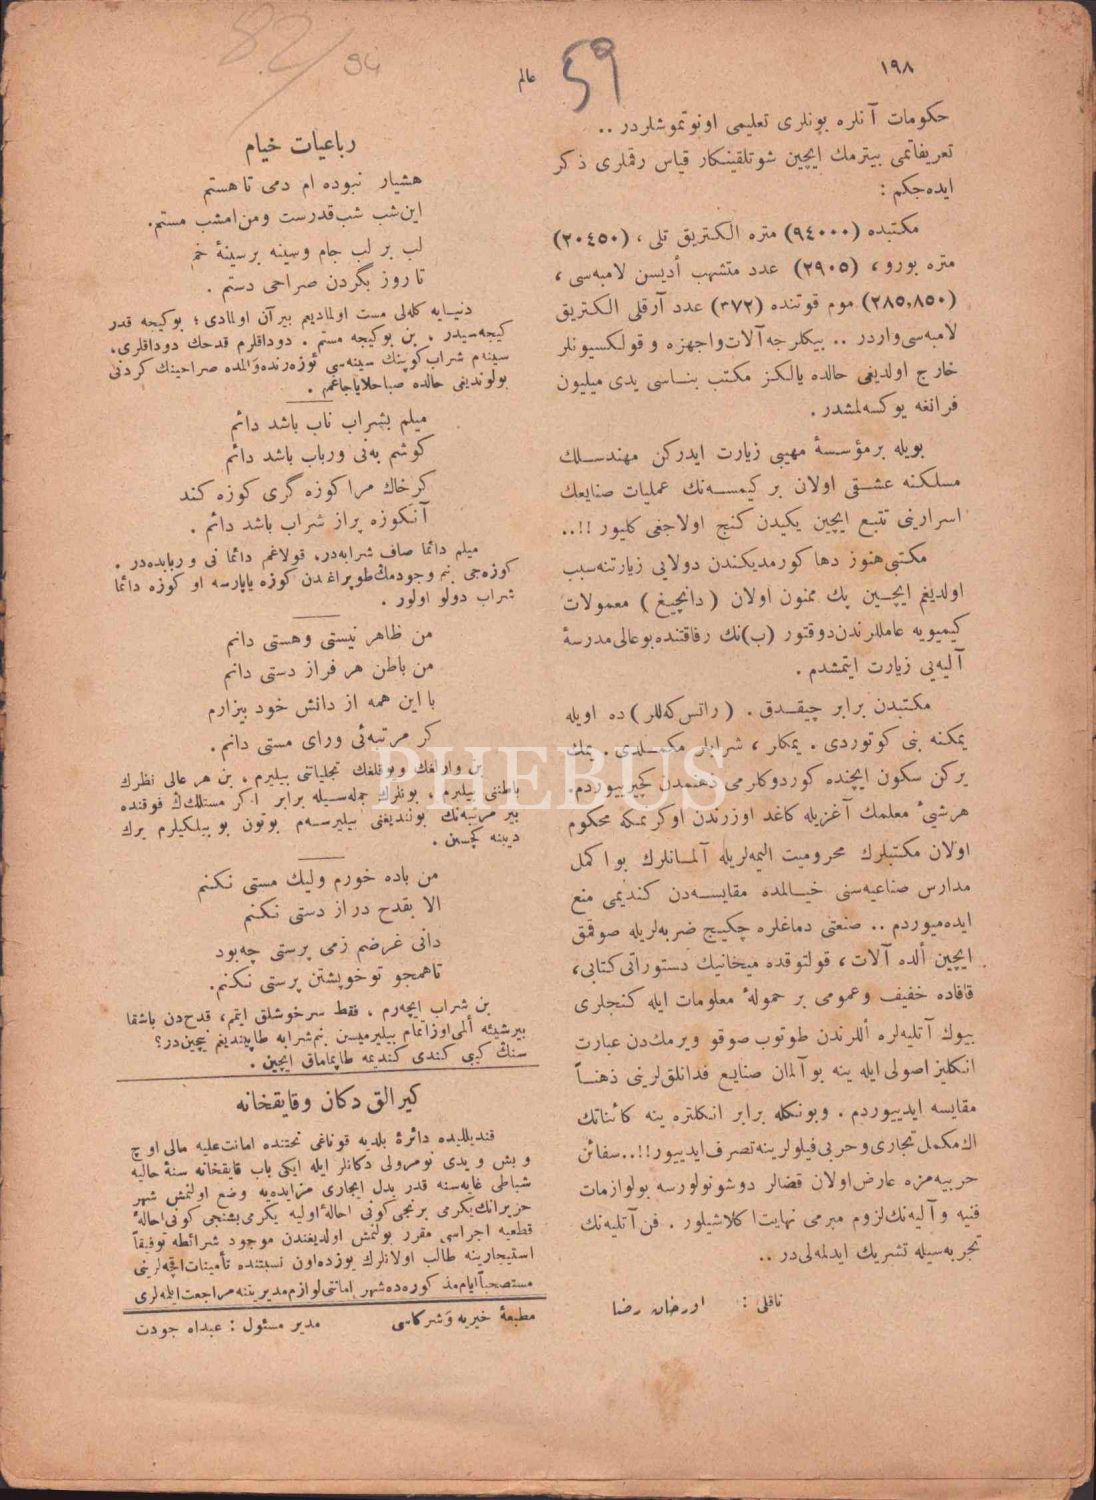 ١٩٨
عالم
59
82/94
حكومات آنلره بونلری تعليمی اونوتموشلردر ..
تعريفاتمی بيترمك ايچين شوتلقينكار قياس رقملری ذكر
ايده‌جكم :
مكتبده (٩٤٠٠٠) متره الكتريق تلی ، (٢٠٤٥٠)
متره بورو ، (٢٩٠٥) عدد متشهب أديسن لامبه‌سی ،
(٢٨٥,٨٥٠) موم قوتنده (٣٧٢) عدد آرقلی الكتريق
لامبه‌سی واردر .. بيكلرجه آلات واجهزه و قولكسيونلر
خارج اولديغی حالده يالكز مكتب بناسی يدی ميليون
فرانغه يوكسه‌لمشدر .
بويله برمؤسسهٔ مهيبی زيارت ايدركن مهندسلك
مسلكنه عشقی اولان بر كيمسه‌نك عمليات صنايعك
اسرارينی تتبع ايچين يكيدن كنج اولاجغی كليور !!..
مكتبی هنوز دها كورمديكندن دولايی زيارتنه سبب
اولديغم ايچين پك ممنون اولان (دانچيغ) معمولات
كيمويه عامللرندن دوقتور (ب)نك رفاقتنده بوعالی مدرسهٔ
آليه‌یی زيارت ايتمشدم .
مكتبدن برابر چيقدق . (راتس كه‌للر) ده اويله
يمكنه بنی كوتوردی . يمكلر ، شرابلر مكملدی . يمك
يركن سكون ايچنده كوردوكلرمی ذهنمدن كچيرييوردم.
هرشيئ معلمك آغزيله كاغد اوزرندن اوكرنمكه محكوم
اولان مكتبلرك محروميت اليمه‌لريله آلمانلرك بو اكمل
مدارس صناعيه‌سنی خيالمده مقايسه‌دن كنديمی منع
ايده‌ميوردم .. صنعتی دماغلره چكيچ ضربه‌لريله صوقمق
ايچين ألده آلات ، قولتوقده ميخانيك دستوراتی كتابی ،
قافاده خفيف وعمومی بر حمولهٔ معلومات ايله كنجلری
بيوك آتليه‌لره أللرندن طوتوب صوقو ويرمك‌دن عبارت
انكليز اصولی ايله ينه بو آلمان صنايع فدانلق‌لرينی ذهناً
مقايسه ايدييوردم . وبونكله برابر انكلتره ينه كائناتك
اك مكمل تجاری و حربی فيلولرينه تصرف ايدييور !!.. سفائن
حربيه‌مزه عارض اولان قضالر دوشونولورسه بولوازمات
فنيه و آليه‌نك لزوم مبرمی نهايت اكلاشيلور . فن آتليه‌نك
تجربه‌سيله تشريك ايدلمه‌لی‌در ..
ناقلی : اورخان رضا
رباعيات خيام
هشيار نبوده ام دمی تا هستم
اين شب شب قدرست ومن امشب مستم.
لب بر لب جام وسينه برسينهٔ خم
تا روز بگردن صراحی دستم .
دنيايه كله‌لی مست اولماديغم بير آن اولمادی ؛ بوكيجه قدر
كيجه‌سيدر . بن بوكيجه مستم . دوداقلرم قدحك دوداقلری،
سينه‌م شراب كوپنك سينه‌سی ئوزه‌رنده وألمده صراحينك كردنی
بولونديغی حالده صباحلاياجاغم .
ميلم بشراب ناب باشد دائم
كوشم به‌نی ورباب باشد دائم
كر خاك مرا كوزه گری كوزه كند
آنكوزه پراز شراب باشد دائم .
ميلم دائما صاف شرابه‌در، قولاغم دائما نی و ربابده‌در .
كوزه‌جی بنم وجودمك طوپراغندن كوزه ياپارسه او كوزه دائما
شراب دولو اولور .
من ظاهر نيستی وهستی دانم
من باطن هر فراز دستی دانم
با اين همه از دانش خود بيزارم
كر مرتبه‌ئی ورای مستی دانم .
بن وارلغك ويوقلغك تجلياتنی بيليرم . بن هر عالی نظرك
باطننی بيليرم . بونلرك جمله‌سيله برابر اكر مستلك‌ك فوقنده
بير مرتبه‌نك بولنديغنی بيليرسه‌م بوتون بو بيلكيلرم يرك
ديبنه كچسين .
من باده خورم وليك مستی نكنم
الا بقدح دراز دستی نكنم
دانی غرضم زمی پرستی چه‌بود
تاهمچو تو خويشتن پرستی نكنم.
بن شراب ايچه‌رم . فقط سرخوشلق ايتمم، قدح‌دن باشقا
بيرشيئه ألمی اوزاتمام بيليرميسن بنم شرابه طاپينديغم نيچين‌در؟
سنك كيبی كندی كنديمه طاپماماق ايچين .
كيرالق دكان وقايقخانه
قنديلليده دائرهٔ بلديه قوناغی تحتنده امانت عليه مالی اوچ
وبش ويدی نومرولی دكانلر ايله ايكی باب قايقخانه سنهٔ حاليه
شباطی غايه‌سنه قدر بدل ايجاری مزايده‌يه وضع اولنمش شهر
حزيرانك يكرمی برنجی كونی احالهٔ اوليه يكرمی بشنجی كونی احالهٔ
قطعيه اجراسی مقرر بولنمش اولديغندن موجود شرائطه توفيقاً
استيجارينه طالب اولانلرك يوزده اون نسبتنده تأمينات اقچه‌لرينی
مستصحباً ايام مذكوره‌ده شهر امانتی لوازم مديريتنه مراجعت ايلمه‌لری
مطبعهٔ خيريه وشركاسی
مدير مسئول : عبداه جودت
PHEBUS